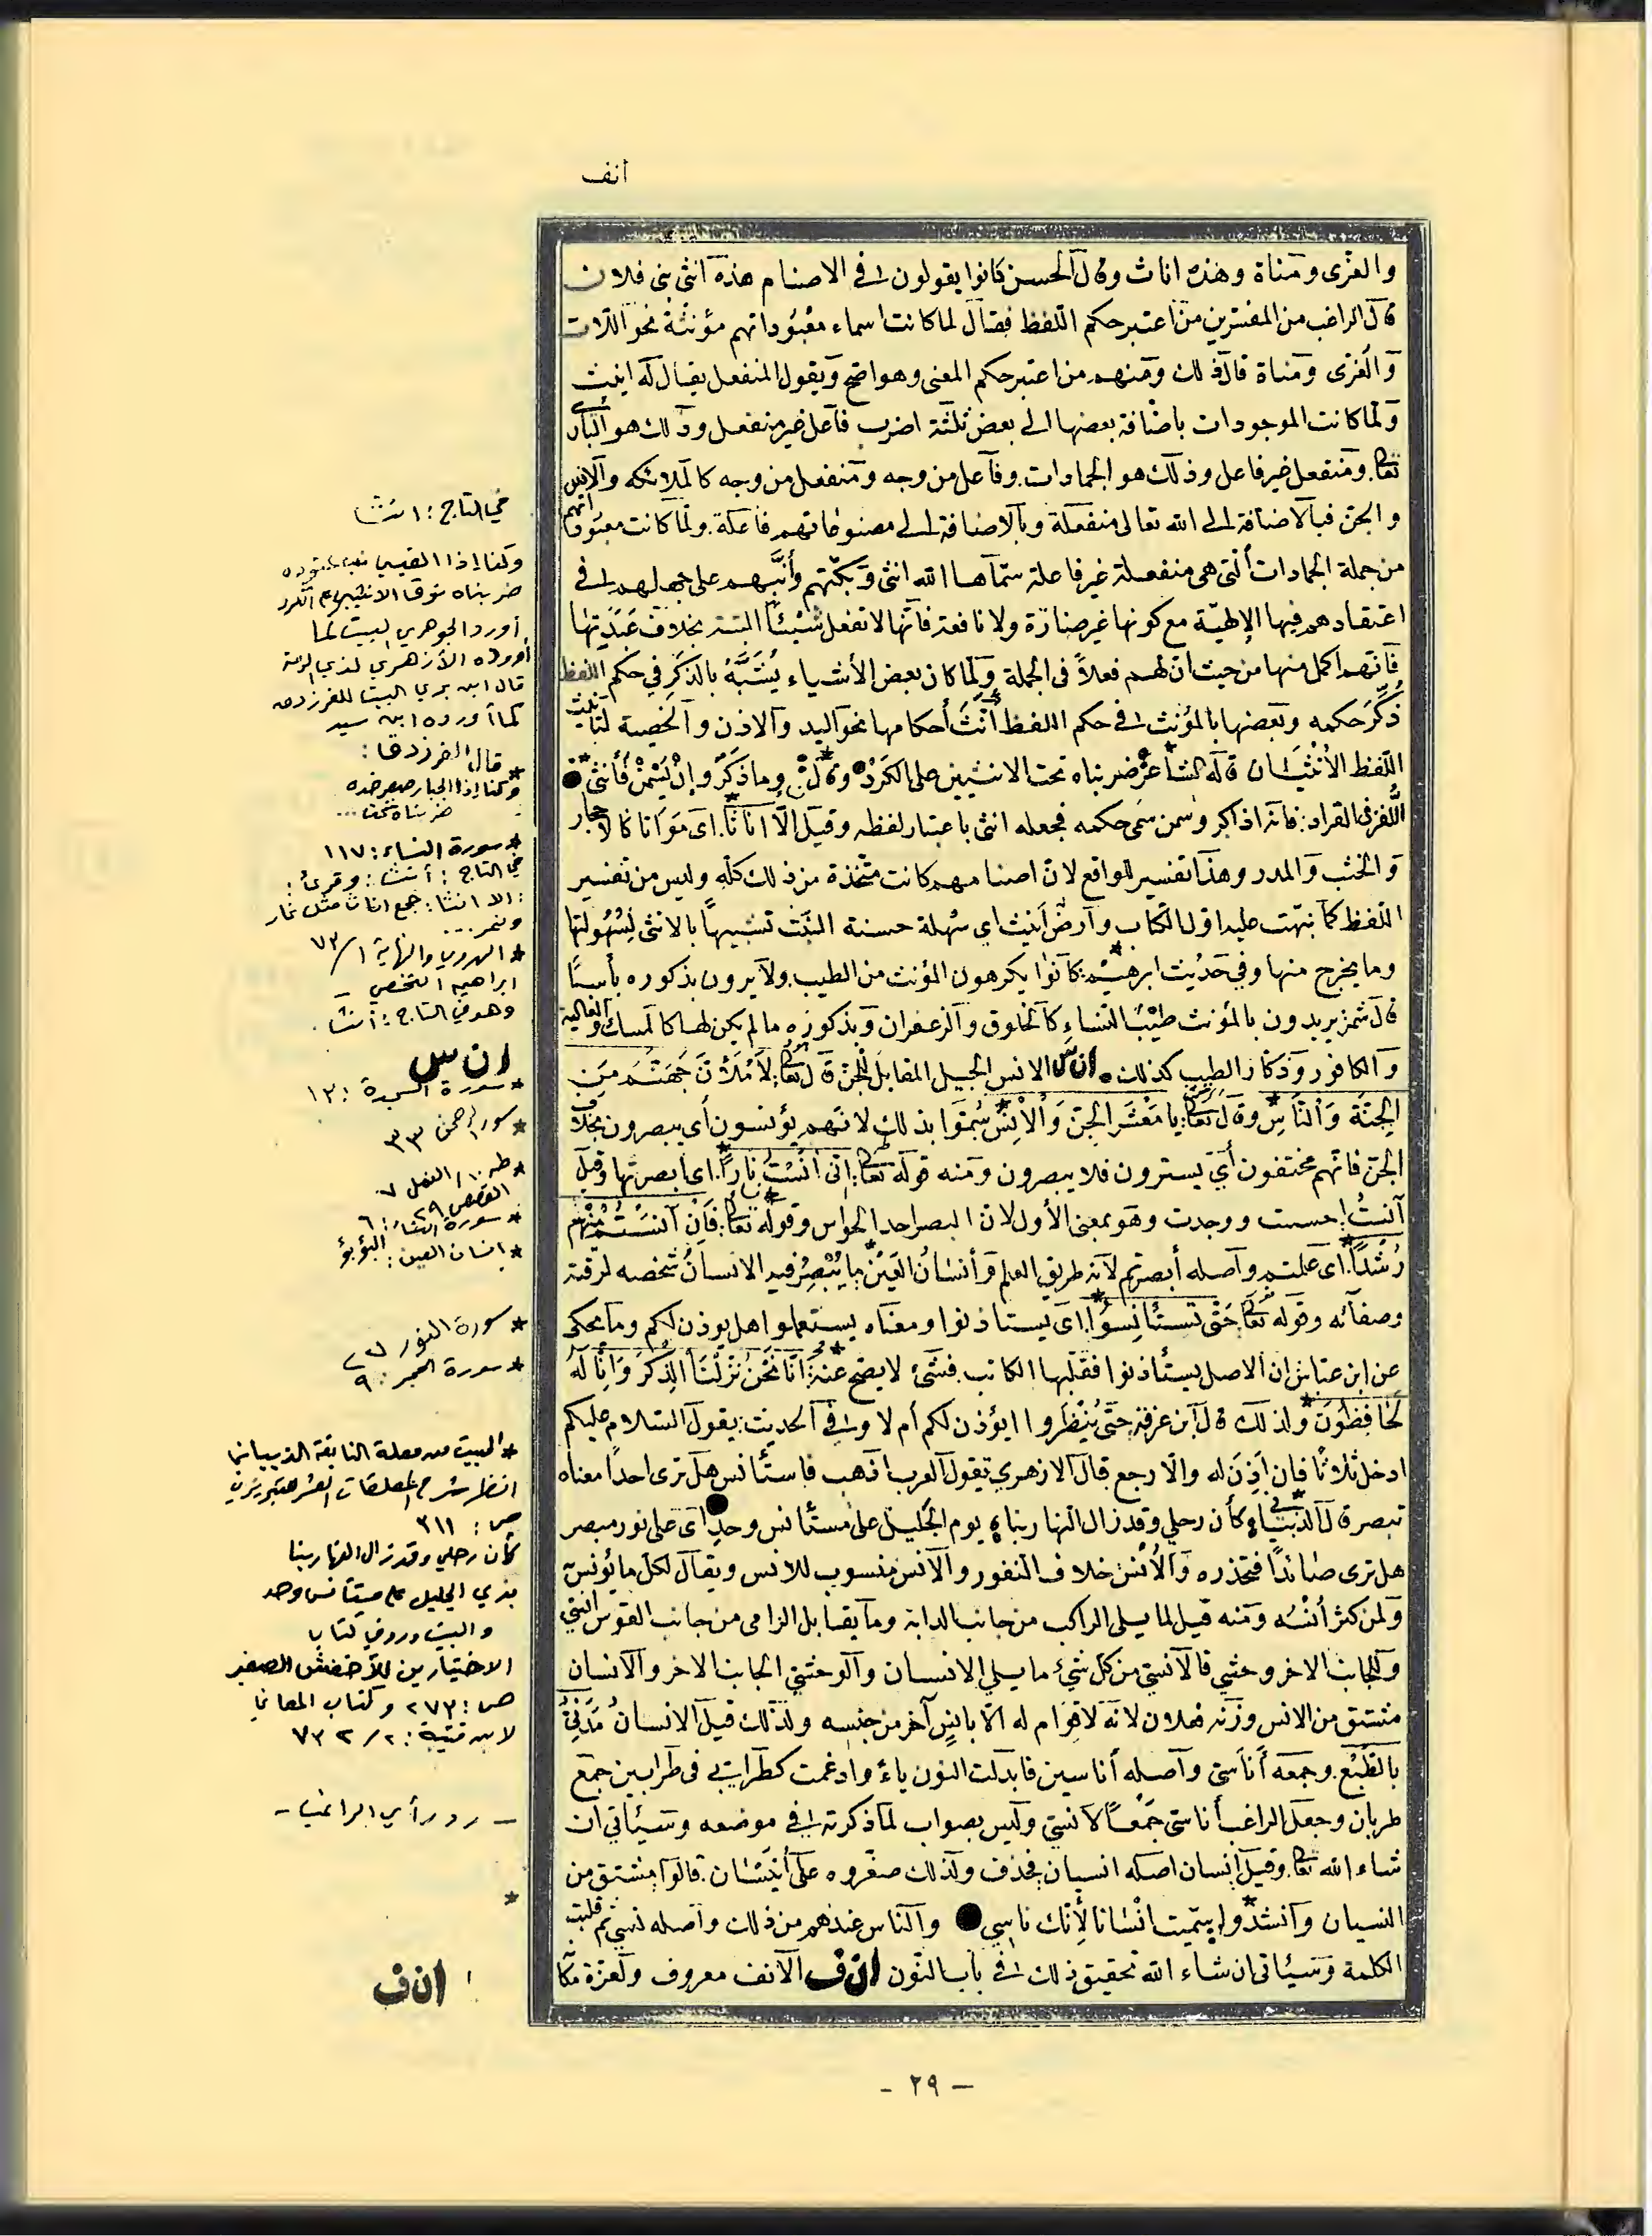 انف
والعزّى ومناة وهذه اناث وقال الحسن كانوا يقولون في الاصنام هذه انثى بني فلان
قال الراغب من المفسرين من اعتبر حكم اللفظ فقال لما كانت اسماء معبوداتهم مؤنثة نحو اللات
والعزى ومناة قال ذلك ومنهم من اعتبر حكم المعنى وهو اصح ويقول المنفعل يقال له انيث
ولما كانت الموجودات باضافة بعضها الى بعض ثلثة اضرب فاعل غير منفعل وذلك هو الباري
تعا. ومنفعل غير فاعل وذلك هو الجمادات. وفاعل من وجه ومنفعل من وجه كالملائكة والانس
والجن فبالاضافة الى الله تعالى منفعلة وبالاضافة الى مصنوعاتهم فاعلة. ولما كانت معبوداتهم
من جملة الجمادات التي هي منفعلة غير فاعلة سماها الله انثى وبكّتهم وأنّبهم على جهلهم في
اعتقادهم فيها الإلهيّة مع كونها غير ضارة ولا نافعة فانّها لا تفعل شيئاً البتة بخلاف عَبَدَتِها
فانهم اكمل منها من حيث ان لهم فعلاً في الجملة ولما كان بعض الأشياء يُشَبَّهُ بالذكَرِ في حكم اللفظ
ذُكِّرَ حكمه وبعضها بالمؤنث في حكم اللفظ أُنِّثَ أحكامها نحو اليد والاذن والخصية لتأنيث
اللفظ الأُنْثَيَان قاله الشاعر ضربناه تحت الانثيين على الكَرْدِ وقال وما ذكرٌ وإن يَسْمَنْ فأنثى
اللغز في القراد: فانه اذا كبر وسمن سمى حكمه فجعله انثى باعتبار لفظه وقيل إلّا اناثاً. اى مَوَاتا كالاحجار
والخشب والمدر وهذا تفسير للواقع لان اصنامهم كانت متّخذة من ذلك كلّه وليس من تفسير
اللفظ كما نبهت عليه اول الكتاب وارضٌ أنيث اي سُهلة حسنة النَبْت تشبيهاً بالانثى لِسُهُولتها
وما يخرج منها وفي حديث ابرهيم: كانوا يكرهون المؤنث من الطيب. ولا يرون بذكوره بأساً
قال شمر يريدون بالمؤنث طيب النساء كالخلوق والزعفران وبذكوره ما لم يكن لها كالمسك والغالية
والكافور وذكار الطيب كذلك . ان س الانس الجيل المقابل للجن قال تعا: لأَمْلَأَنَّ جَهَنَّمَ مِنَ
الجِنّةِ وَالنَّاسِ وقال تعا: يا مَعْشَرَ الجِنِّ وَالْاِنْسِ سُمّوا بذلك لانهم يؤنسون أي يبصرون بخلاف
الجن فانهم مختفون أي يسترون فلا يبصرون ومنه قوله تعا: اني آنَسْتُ ناراً. اى ابصرتها وقيل
آنستُ احسست ووجدت وهو بمعنى الأول لان البصر احد الحواس وقوله تعا: فَإِنْ آنَسْتُمْ مِنْهُمْ
رُشْداً. اى علمتم وأصله أبصرتم لانه طريق العلم وأنسانُ العَيْنِ ما يُبْصِرُ فيه الانسانُ شخصه لرقته
وصفائه وقوله تعا: حَتّى تَسْتَأنِسُوا. اى يستاذنوا ومعناه يستعلموا اهل يوذن لكم وما يحكى
عن ابن عباس ان الاصل يستأذنوا فقلبها الكاتب. فشئ لا يصح عنه: اِنّا نَحْنُ نَزَّلْنَا الذِكْرَ وَاِنّا لَهُ
لَحَافِظُونَ ولذلك قال ابن عرفة حتّى يُنْظَروا ايؤذن لكم أم لا وفي الحديث: يقول السلام عليكم
ادخل ثلاثاً فإن أذِنَ له والّا رجع قال الازهري تقول العرب اذهب فاستأنس هل ترى احداً معناه
تبصر قال الذبياني: كأن رحلي وقد زال النهار بنا يوم الجليل على مستأنس وحدِ اى على نور مبصر
هل ترى صائداً فتحذره والأُنْسُ خلاف النفور والانس منسوب للانس ويقال لكل ما يُؤنس
ولمن كثر أنسُه ومنه قيل لما يلي الراكب من جانب الدابة وما يقابل الرامى من جانب القوس انسي
وللجانب الاخر وحشي فالانسي من كل شيء ما يلي الإنسان والوحشي الجانب الاخر والانسان
مشتق من الانس وزنه فعلان لانه لا قوام له الا بانسٍ آخر من جنسه ولذلك قيل الانسانُ مَدَنيٌّ
بالطَّبْع. وجمعه أناسيّ وأصله أناسين فابدلت النون ياء وادغمت كطرابي في طرابين جمع
طربان وجعل الراغب أناسي جَمْعاً لانسي وليس بصواب لما ذكرته في موضعه وسيأتي ان
شاء الله تعا. وقيل إنسان اصله انسيان فحذف ولذلك صغّروه على أُنَيْسَان. قالوا مشتق من
النسيان وانشدوا سميت انسانا لأنك ناسي والناس عندهم من ذلك وأصله نسي ثم قلبت
الكلمة وسيأتى ان شاء الله تحقيق ذلك في باب النون ان ف الانف معروف ولعزة مكا
في التاج: انثا
وكنا إذا القيسي نب عتوده
ضربناه فوق الانثيين على الكرد
أورد الجوهري البيت كما
أورده الأزهري لذي الرمة
قال ابن بري البيت للفرزدق
كما أورده ابن سيده
قال الفرزدق:
* وكنا إذا الجبار صعر خده
ضربناه تحت ...
* سورة النساء: ١١٧
في التاج: أنثا: وقرئ:
: إلا انثا: جمع اناث مثل ثمار
وثمر...
* الهروي والنهاية ١/ ٧٣
ابراهيم النخعي –
وهو في التاج: أنثا.
ان س
* سورة السجدة: ١٣
* سورة الرحمن ٣٣
* طه ١٠ / النمل ٧
القصص ٢٩
* سورة النساء: ٦
* إنسان العين: البؤبؤ
* سورة النور ٢٧
* سورة الحجر: ٩
* البيت من معلقة النابغة الذبياني
انظر شرح المعلقات العشر للتبريزي
ص: ٣١١
كأن رحلي وقد زال النهار بنا
بذي الجليل على مستأنس وحد
والبيت ورد في كتاب
الاختيارين للأخفش الصغير
ص: ٢٧٣ وكتاب المعاني
لابن قتيبة: ٢/ ٧٣٢
– رد رأي الراغب –
*
ان ف
- ٢٩ -